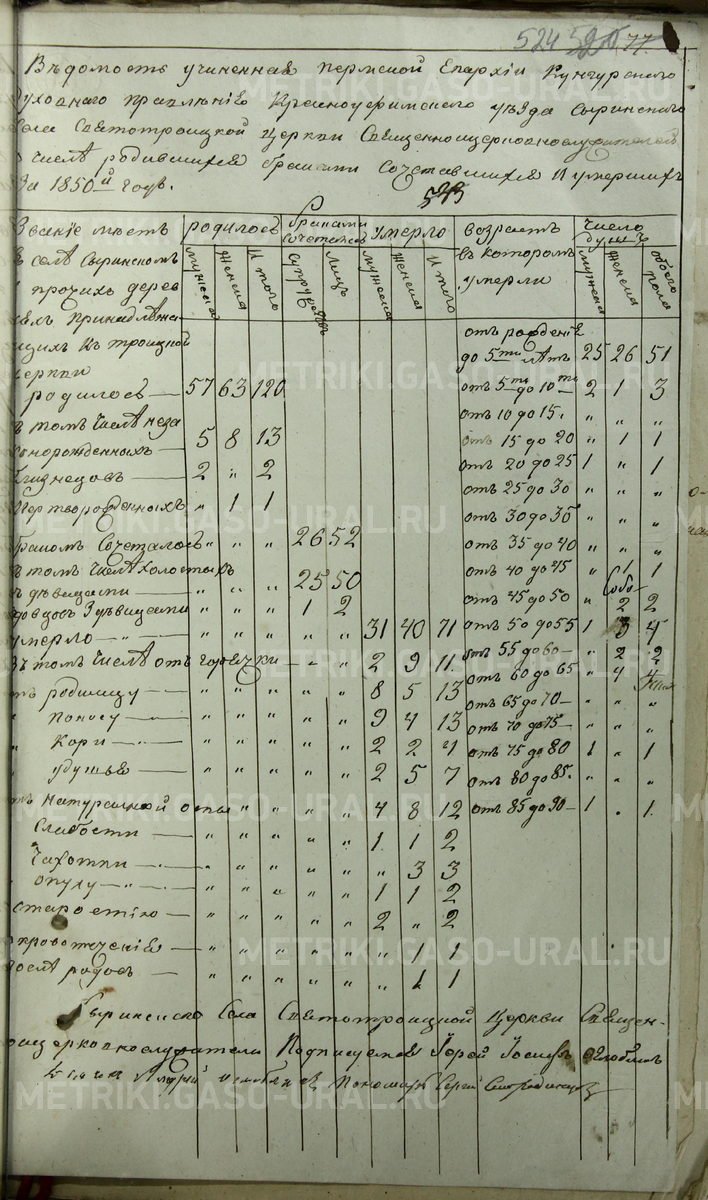 524 77
Вѣдомость учиненная Пермской Епархіи Кунгурскаго
Духовнаго правленія Красноуфимскаго уѣзда Сыринскаго
Села Святотроицкой Церкви Священноцерковнослужителей
о числѣ родившихся бракомъ Сочетавшихся и умершихъ
За 1850й годъ.
523
Званіе мѣстъ родилось бракомъ сочеталось умерло возрастъ число душъ
въ селѣ Сыринскомъ мужеска женска итого супружествъ лицъ мужеска женска итого въ которомъ мужеска женска обоего пола
и прочихъ дерев умерли
няхъ принадлежа
щихъ къ троицкой отъ рожденія
церкви до 5ти лѣтъ 25 26 51
родилось 57 63 120 отъ 5ти до 10ти 2 1 3
въ томъ числѣ неза отъ 10 до 15. " " "
коннорожденныхъ 5 8 13 отъ 15 до 20 " 1 1
близнецовъ 2 " 2 отъ 20 до 25 1 " 1
мертворожденныхъ " 1 1 отъ 25 до 30 " " "
отъ 30 до 35 " " "
бракомъ Сочеталось " " " 26 52 отъ 35 до 40 " " "
въ томъ числѣ холостыхъ 25 50 отъ 40 до 45 " 1 1
съ дѣвицами " " "
вдовцовъ З дѣвицами " " " 1 2 отъ 45 до 50 " 2 2
умерло " " " " " 31 40 71 отъ 50 до 55 1 3 4
Въ томъ числѣ отъ горячки " " 2 9 11 отъ 55 до 60 " 2 2
отъ родимцу " " " " " 8 5 13 отъ 60 до 65 " 4 4
" поносу " " " " " 9 4 13 отъ 65 до 70 " " "
" Кори " " " " " 2 2 4 отъ 70 до 75 " " "
" удушья " " " " " 2 5 7 отъ 75 до 80 1 " 1
отъ 80 до 85. " " "
отъ натуральной оспы " " " " 4 8 12 отъ 85 до 90 1 " 1
Слабости " " " " " 1 1 2
Чахотки " " " " " " 3 3
опуху " " " " " 1 1 2
старостію " " " " " 2 " 2
кровотеченія " " " " " " 1 1
послѣ родовъ " " " " " " 1 1
Сыринскаго Села Святотроицкой Церкви Священ-
ноцерковнослужители Подписуемся Іерей Іосифъ
Пономарь Сергей
METRIKI.GASO-URAL.RU
METRIKI.GASO-URAL.RU
METRIKI.GASO-URAL.RU
METRIKI.GASO-URAL.RU
METRIKI.GASO-URAL.RU
METRIKI.GASO-URAL.RU
METRIKI.GASO-URAL.RU